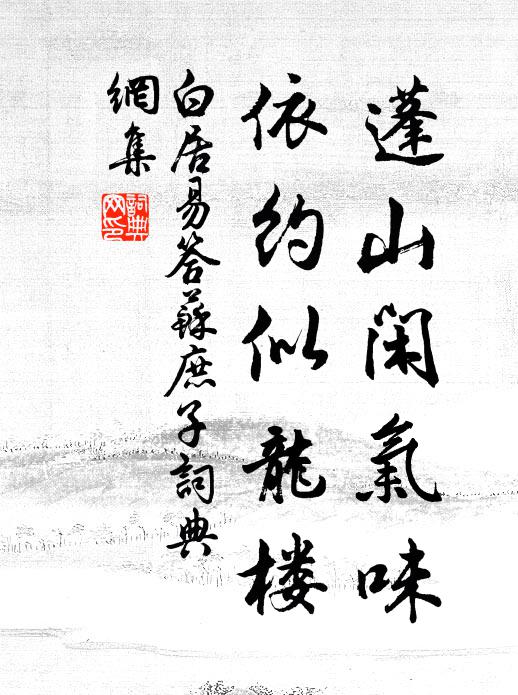 蓬山閑氣味
依約似龍樓
白居易答蘇庶子詞典
網集
詞典
网印